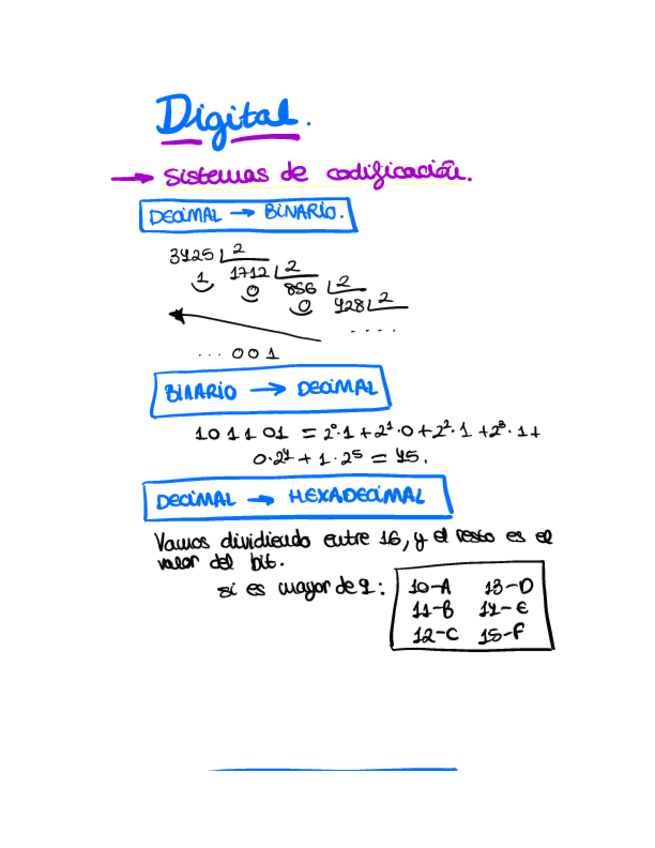 Digital.
→ Sistemas de codificación.
DECIMAL → BINARIO.
3425 2
1 1712 2
0 856 2
0 428 2
....
... 0 0 1
BINARIO → DECIMAL
1 0 1 1 0 1 = 2⁰·1 + 2¹·0 + 2²·1 + 2³·1 +
0·2⁴ + 1·2⁵ = 45.
DECIMAL → HEXADECIMAL
Vamos dividiendo entre 16, y el resto es el
valor del bit.
si es mayor de 9:
10-A 13-D
11-B 14-E
12-C 15-F